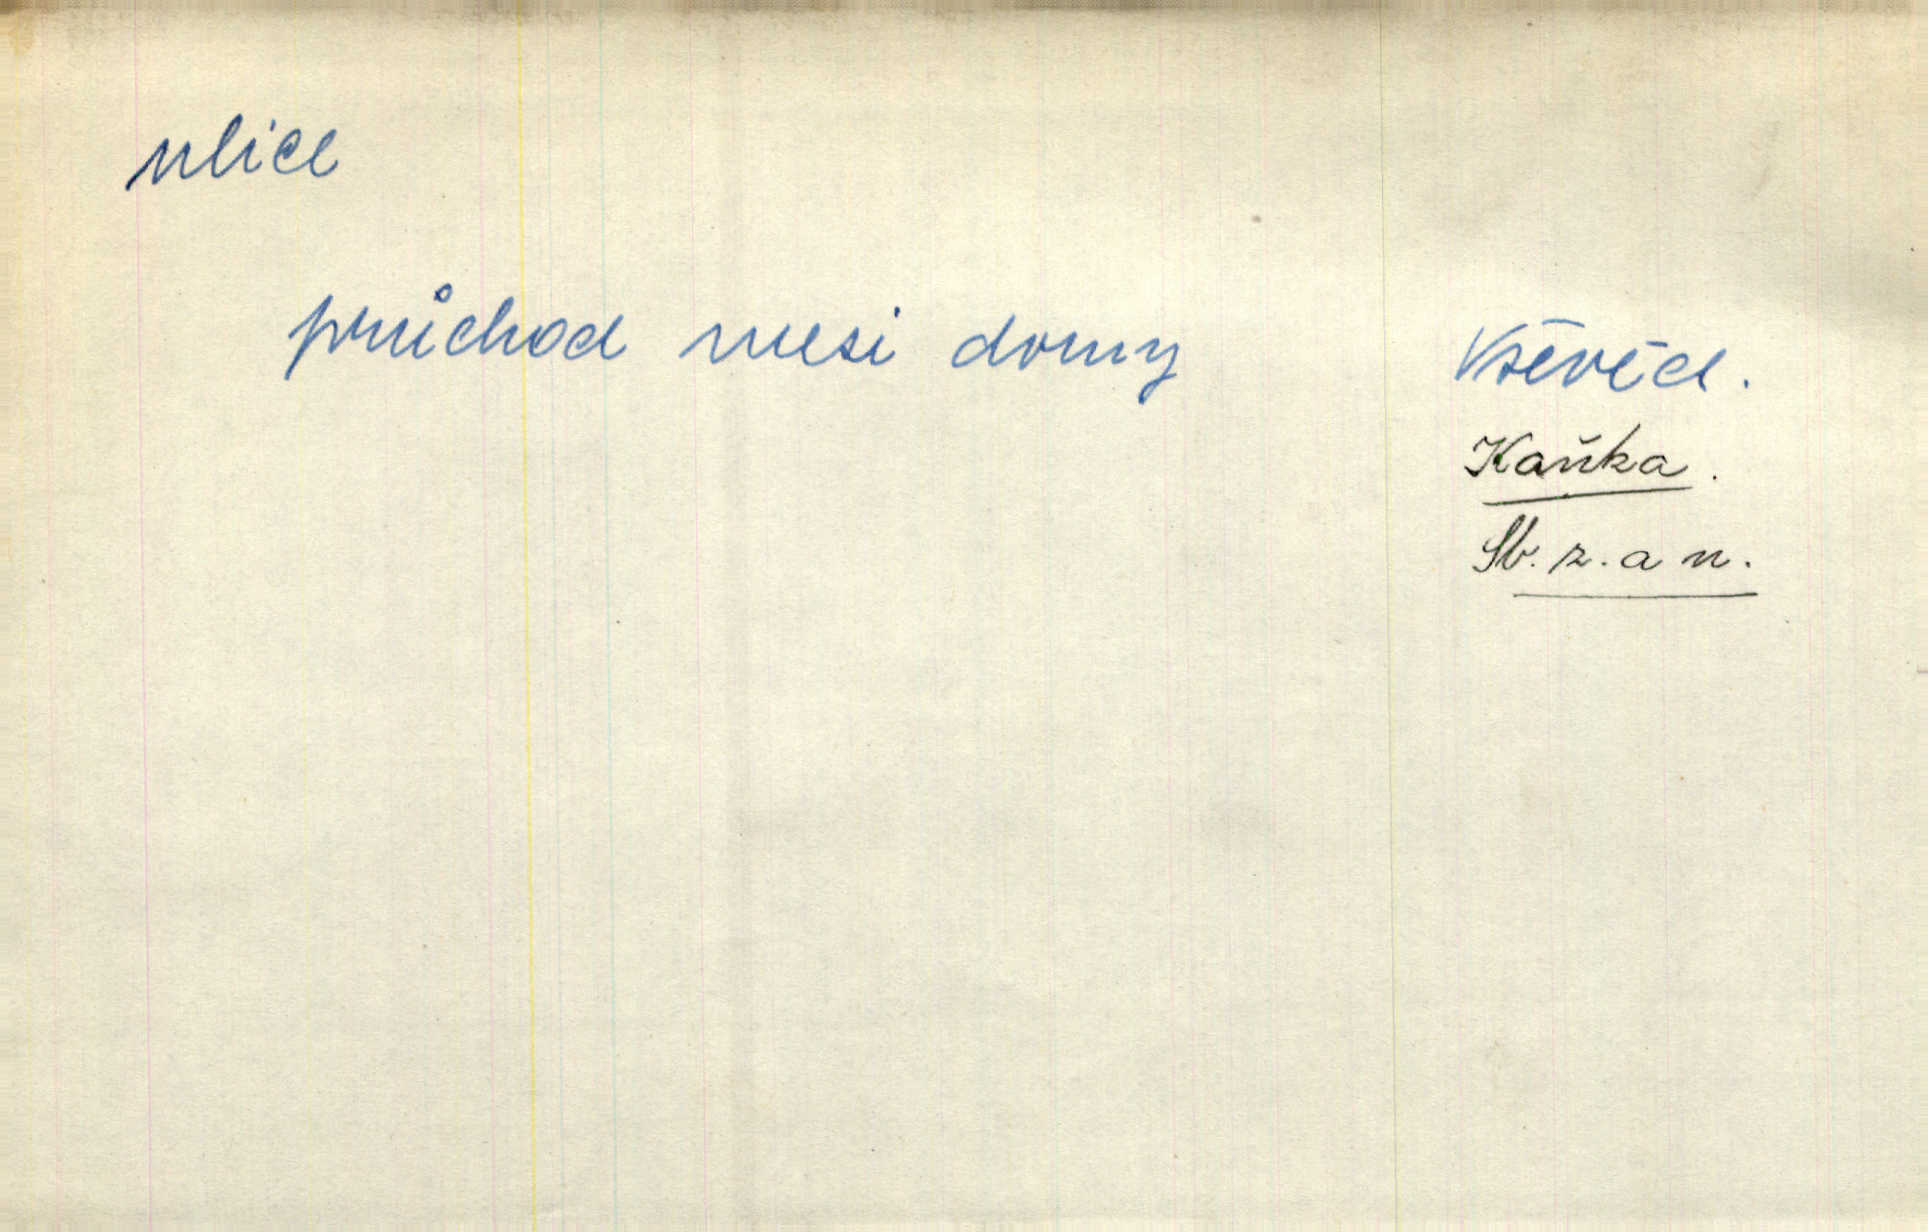 ulice
průchod mezi domy
Vševěd.
Kaňka.
Sb. z. a n.